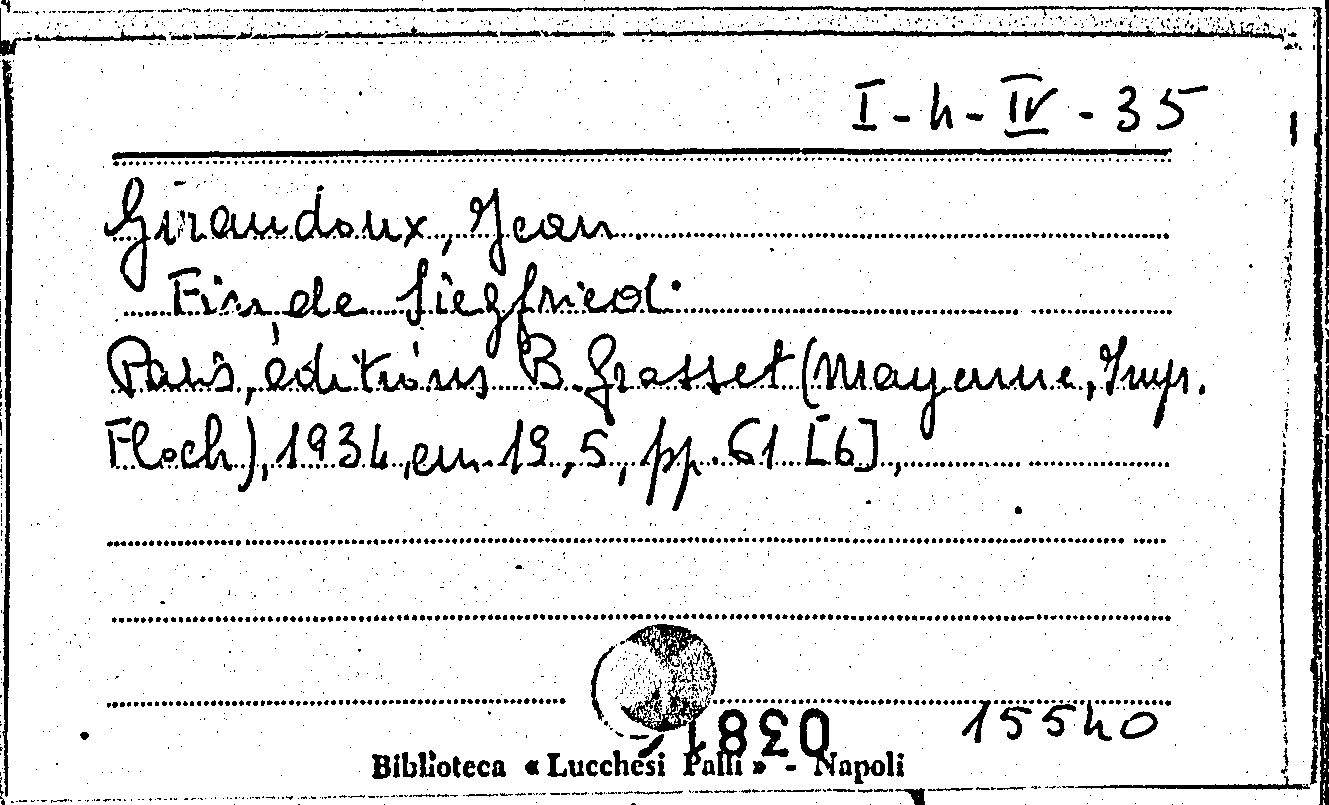 I-h-IV-35
Giraudoux, Jean
Fin de Siegfried.
Paris, éditions B. Grasset (Mayenne, Impr.
Floch), 1934, cm. 19,5, pp. 61 [6].
15540
Biblioteca « Lucchesi Palli » - Napoli